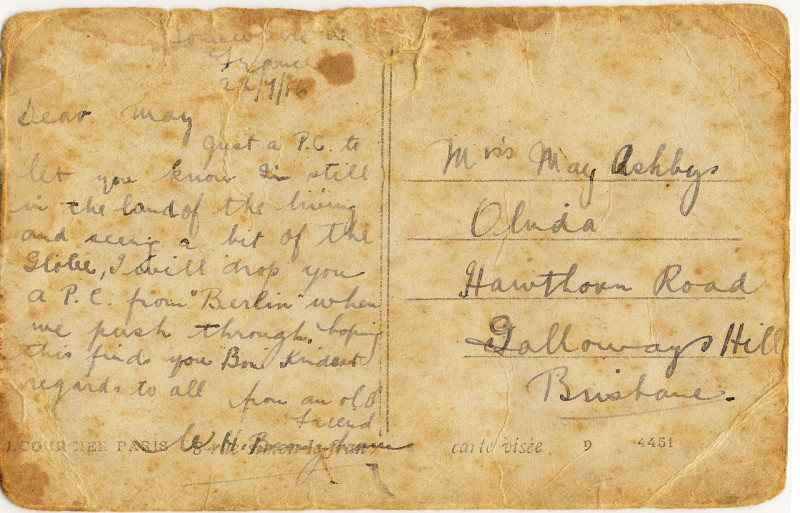 Somewhere in
France
Dear May
Just a P.C. to
let you know I'm still
in the land of the living
and seeing a bit of the
Globe, I will drop you
a P.C. from "Berlin" when
we push through. hoping
this finds you Bon Kindest
regards to all from an old
friend
W. H.
Miss May Ashbys
Hawthorn Road
Galloways Hill
Brisbane.
PARIS 8 rue simon-le-franc
carte visée 9 4451